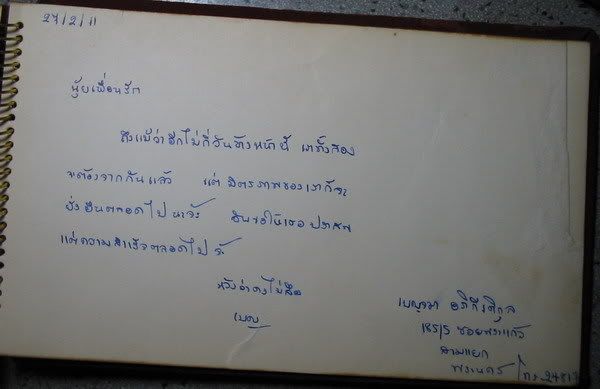 27/2/11
นุ้ยเพื่อนรัก
ถึงแม้ว่าอีกไม่กี่วันข้างหน้านี้ เราทั้งสอง
จะต้องจากกันแล้ว แต่มิตรภาพของเราก็จะ
ยั่งยืนตลอดไปนะจ๊ะ ฉันขอให้เธอประสพ
แต่ความสำเร็จตลอดไปจ้ะ
หวังว่าคงไม่ลืม
เบญ
185/5 ซอยพระแก้ว
สามแยก
พระนคร โทร.